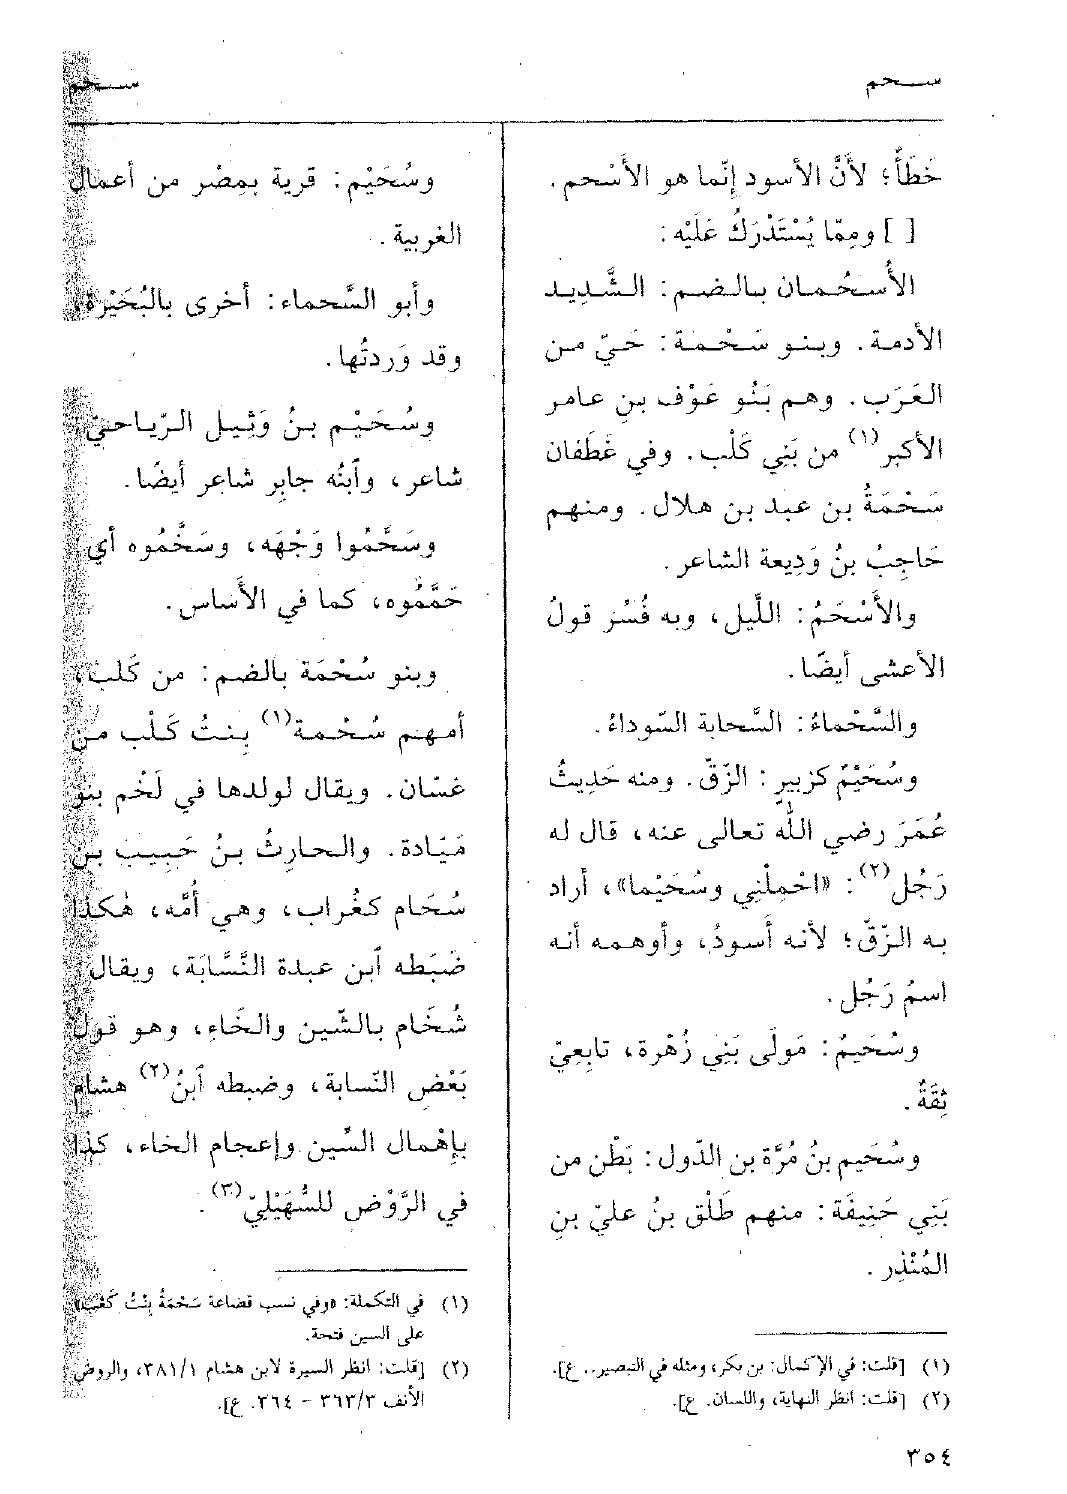 سحم
سحم
خَطَأٌ؛ لأَنَّ الأسود إنّما هو الأَسْحم.
[ ] ومِمّا يُسْتَدْرَكُ عَلَيْه:
الأُسـحُـمـان بـالـضـم: الـشَّـديد
الأدمة. وبنو سَحْمة: حَيّ من
العَرَب. وهم بَنُو عَوْف بنِ عامر
الأكبر(١) من بَنِي كَلْب. وفي غَطَفان
سَحْمَةُ بن عبد بن هلال. ومنهم
حَاجِبُ بنُ وَدِيعة الشاعر.
والأَسْحَمُ: اللَّيل، وبه فُسِّرَ قولُ
الأعشى أيضًا.
والسَّحْماءُ: السَّحابة السّوداءُ.
وسُحَيْمٌ كزبيرٍ: الزّقّ. ومنه حَدِيثُ
عُمَرَ رضي اللّٰه تعالى عنه، قال له
رَجُل(٢): «احْمِلْنِي وسُحَيْما»، أراد
به الزّقّ؛ لأنه أَسودُ، وأوهمه أنه
اسمُ رَجُل.
وسُحَيمٌ: مَولَى بَنِي زُهْرة، تابعِيّ
ثِقَةٌ.
وسُحَيم بنُ مُرَّة بن الدّول: بَطْن من
بَنِي حَنِيفَة: منهم طَلْق بنُ عليّ بنِ
المُنْذِر.
(١) [قلت: في الإكمال: بن بكر، ومثله في التبصير.. ع].
(٢) [قلت: انظر النهاية، واللسان. ع].
وسُحَيْم: قرية بمِصْر من أعمال
الغربية.
وأبو السَّحماء: أخرى بالبُحَيْرة،
وقد وَردتُها.
وسُحَيْم بنُ وَثِيل الرّياحيّ
شاعر، وٱبنُه جابِر شاعِر أيضًا.
وسَحَّمُوا وَجْهَه، وسَخَّمُوه أي
حَمَّمُوه، كما في الأَساس.
وبنو سُحْمَة بالضم: من كَلب،
أمهم سُحْمة(١) بِنتُ كَلْب من
غسّان. ويقال لولدها في لَخْم بنو
مَيّادة. والحارِثُ بنُ حَبِيب بن
سُحَام كغُراب، وهي أُمّه، هٰكذا
ضَبَطه ٱبن عبدة النَّسَّابَة، ويقال
شُخَام بالشّين والخَاءِ، وهو قول
بَعْض النّسابة، وضبطه ٱبنُ(٢) هشام
بإِهْمال السِّين وإعجام الخاء، كذا
في الرَّوْض للسُّهَيْلِيّ(٣).
(١) في التكملة: «وفي نسب قضاعة سَحْمَةُ بِنْتُ كَعْب»
على السين فتحة.
(٢) [قلت: انظر السيرة لابن هشام ٣٨١/١، والروض
الأنف ٣٦٣/٣ - ٣٦٤. ع].
٣٥٤